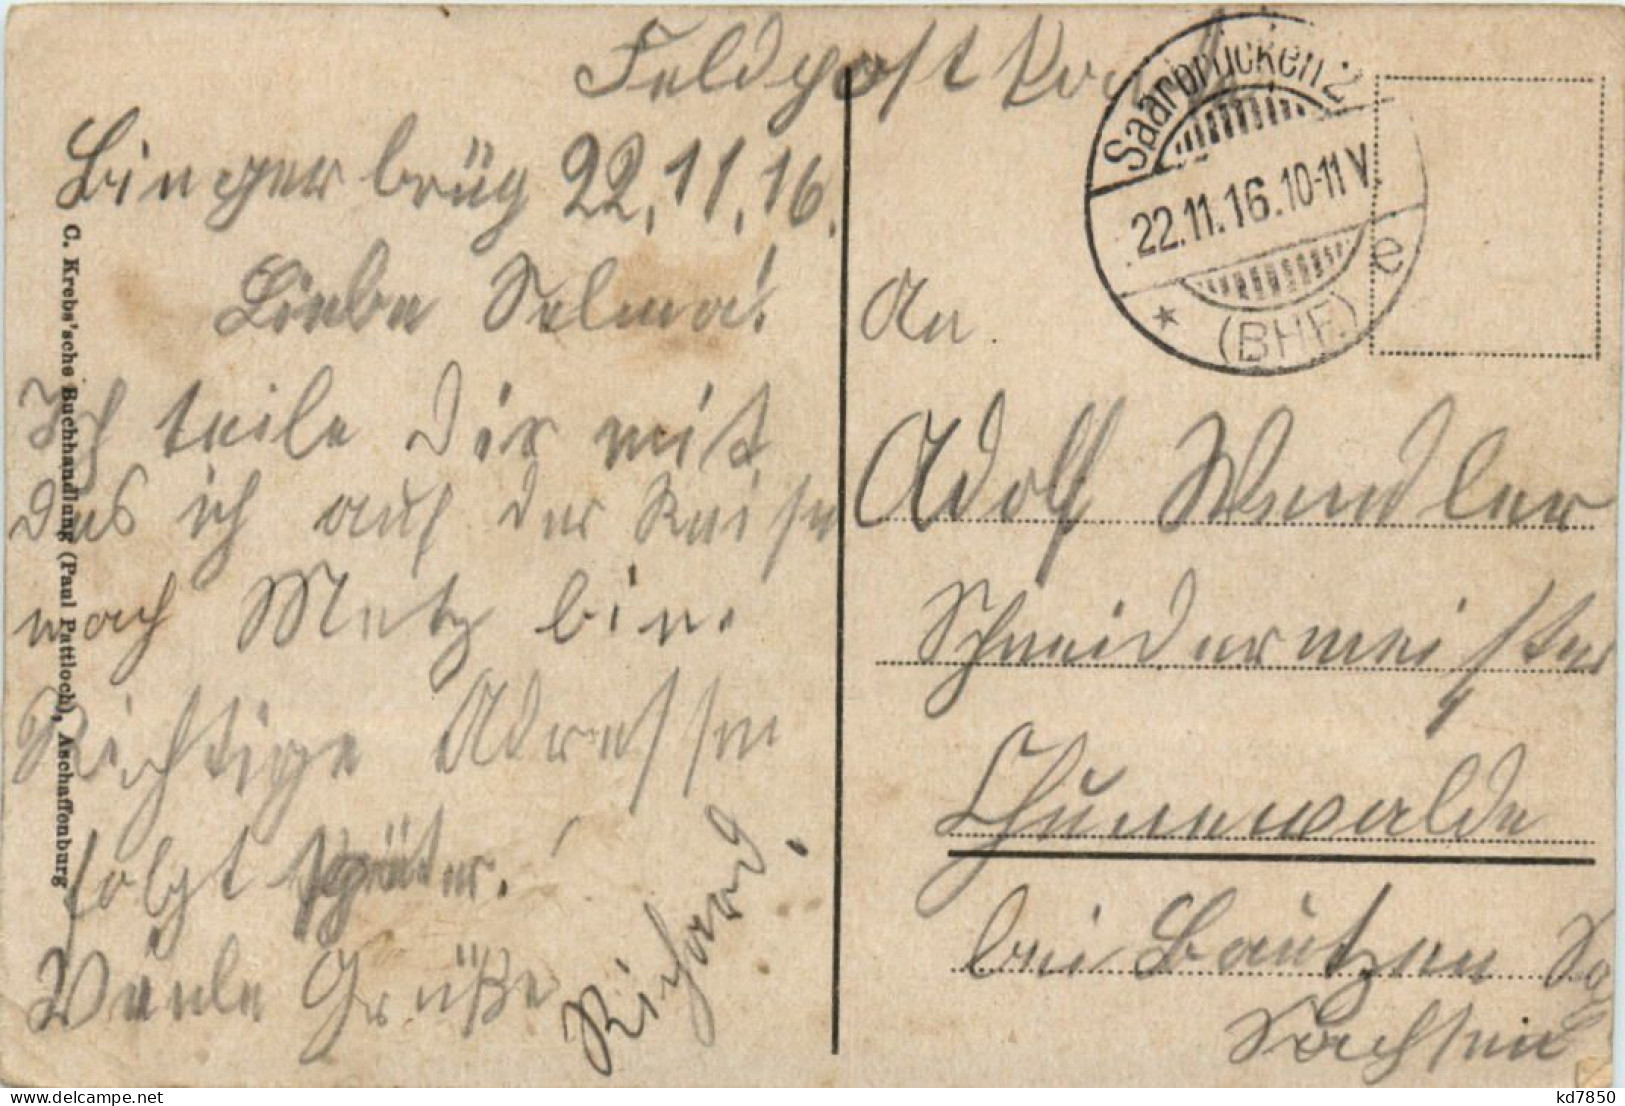 Feldpostkarte
Bingerbrüg 22.11.16.
Liebe Selma!
Ich teile Dir mit
das ich auf der Reise
nach Metz bin.
Richtige Adressen
folgt später.
Viele Grüße
Richard.
C. Krebs'sche Buchhandlung (Paul Pattloch), Aschaffenburg
Saarbrücken 2
22.11.16.10-11V.
* (BHF.) e
An
Adolf Wendler
Schneidermeister
Thunewalde
bei Bautzen
Sachsen
kd7850